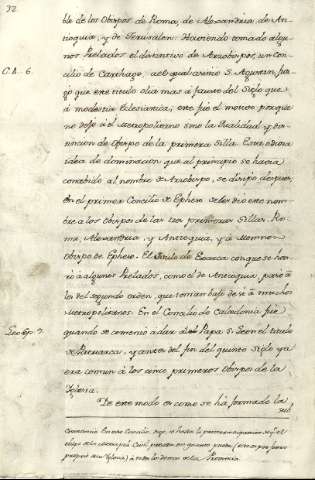 32
ble de los Obispos de Roma, de Alexandria, de An-
tioquia, y de Jerusalen. Haviendo tomado algu-
nos Prelados el distintivo de Arzobispos, un con-
C.A. 6.
cilio de Carthago, a el qual asistio S. Agustin, juz-
gó que este titulo olia mas á fausto del Siglo que
á modestia Eclesiastica; este fue el motivo porque
no dejó á el Metropolitano sino la Realidad y dis-
tincion de Obispo de la primera silla. Esta odiosa
idea de dominacion que al principio se havia
concebido al nombre de Arzobispo, se disipó despues,
En el primer Concilio de Epheso se les dio este nom-
bre a los Obispos de las tres primeras sillas, Ro-
ma, Alexandria, y Antioquia, y á Memnon
Obispo de Epheso. El titulo de Exarca con que se hon-
ró á algunos Prelados, como el de Antioquia, pasó á
los del segundo orden, que tenian bajo de si á muchos
Metropolitanos. En el Concilio de Calcedonia fue
Leo Ep. 9.
quando se comenzó á dar al Papa S. Leon el titulo
de Patriarca, y antes del fin del quinto Siglo ya
era comun á los cinco primeros Obispos de la
Iglesia.
De este modo es como se há formado la